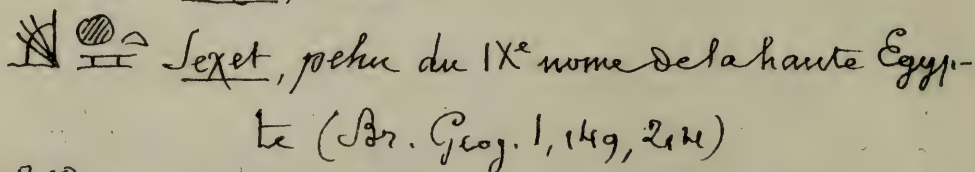 Sexet, pehu du IXe nome de la haute Egyp-
te (Br. Geog. 1, 149, 214)